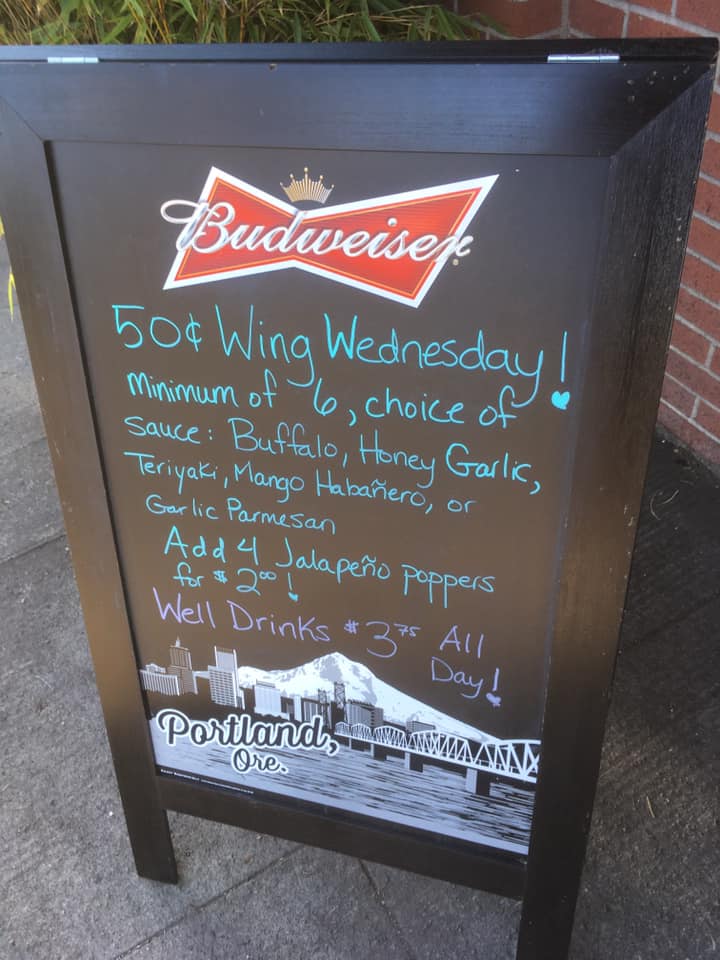 Budweiser
50¢ Wing Wednesday!
Minimum of 6, choice of
sauce: Buffalo, Honey Garlic,
Teriyaki, Mango Habañero, or
Garlic Parmesan
Add 4 Jalapeño poppers
for $2⁰⁰!
Well Drinks $3⁷⁵ All
Day!
Portland,
Ore.